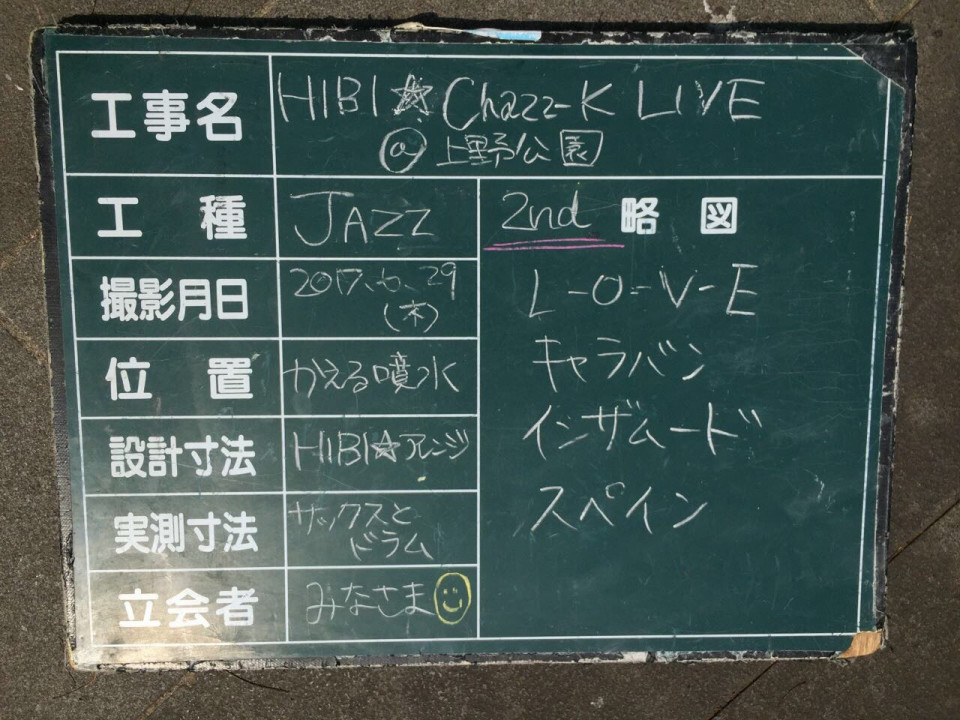 工事名 HIBI☆Chazz-K LIVE
@上野公園
工種 JAZZ
撮影月日 2017.6.29
(木)
位置 かえる噴水
設計寸法 HIBI☆アレンジ
実測寸法 サックスと
ドラム
立会者 みなさま
2nd 略図
L-O-V-E
キャラバン
インザムード
スペイン